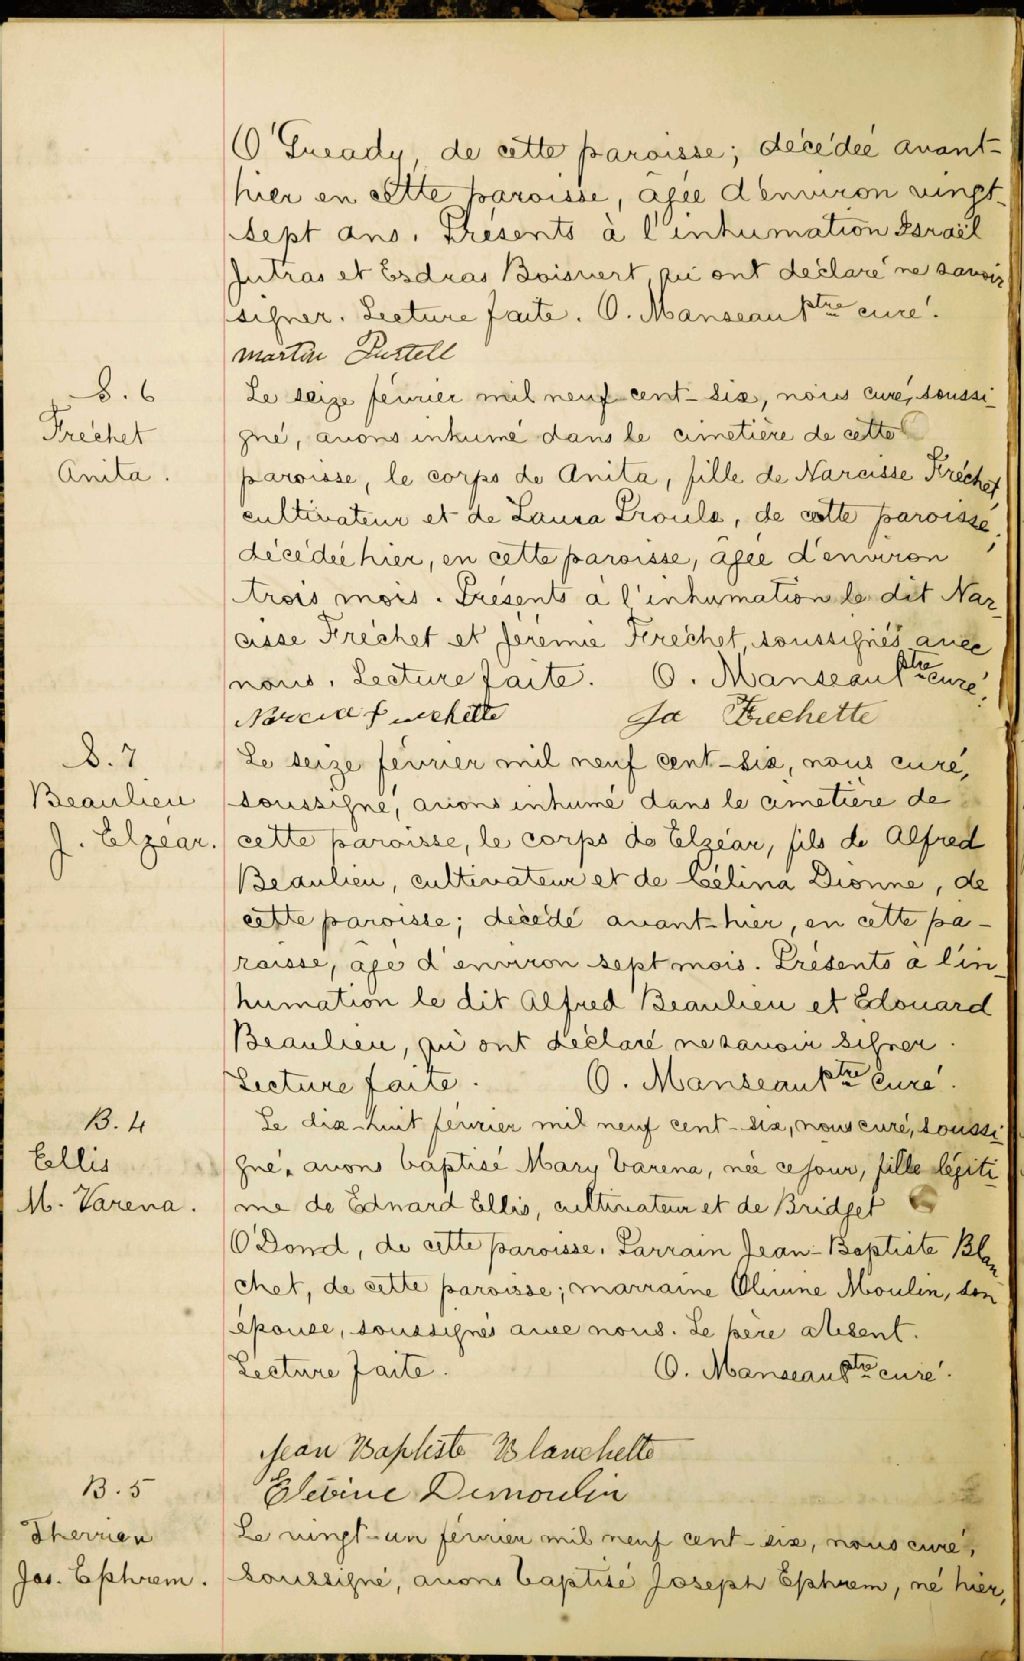 O'Gready, de cette paroisse; décédée avant-
hier en cette paroisse, âgée d'environ vingt-
sept ans. Présents à l'inhumation Israël
Jutras et Esdras Boisvert qui ont déclaré ne savoir
signer. Lecture faite. O. Manseau Ptre curé.
martin Purtell
S. 6
Fréchet
Anita.
Le seize février mil neuf cent-six, nous curé, soussi-
gné, avons inhumé dans le cimetière de cette
paroisse, le corps de Anita, fille de Narcisse Fréchet,
cultivateur et de Laura Proulx, de cette paroisse;
décédée hier, en cette paroisse, âgée d'environ
trois mois. Présents à l'inhumation le dit Nar-
cisse Fréchet et Jérémie Fréchet, soussignés avec
nous. Lecture faite. O. Manseau Ptre curé.
Frechette
Jos Frechette
S. 7
Beaulieu
J. Elzéar.
Le seize février mil neuf cent-six, nous curé,
soussigné, avons inhumé dans le cimetière de
cette paroisse, le corps de Elzéar, fils de Alfred
Beaulieu, cultivateur et de Célina Dionne, de
cette paroisse; décédé avant-hier, en cette pa-
roisse, âgé d'environ sept mois. Présents à l'in-
humation le dit Alfred Beaulieu et Edouard
Beaulieu, qui ont déclaré ne savoir signer.
Lecture faite. O. Manseau Ptre curé.
B. 4
Ellis
M. Varena.
Le dix-huit février mil neuf cent-six, nous curé, soussi-
gné, avons baptisé Mary Varena, née ce jour, fille légiti-
me de Edward Ellis, cultivateur et de Bridget
O'Dowd, de cette paroisse. Parrain Jean-Baptiste Blan-
chet, de cette paroisse; marraine Olivine Moulin, son
épouse, soussignés avec nous. Le père absent.
Lecture faite. O. Manseau Ptre curé.
Jean Baptiste Blanchette
Elévine Demoulin
B. 5
Therrien
Jos. Ephrem.
Le vingt-un février mil neuf cent-six, nous curé,
soussigné, avons baptisé Joseph Ephrem, né hier,